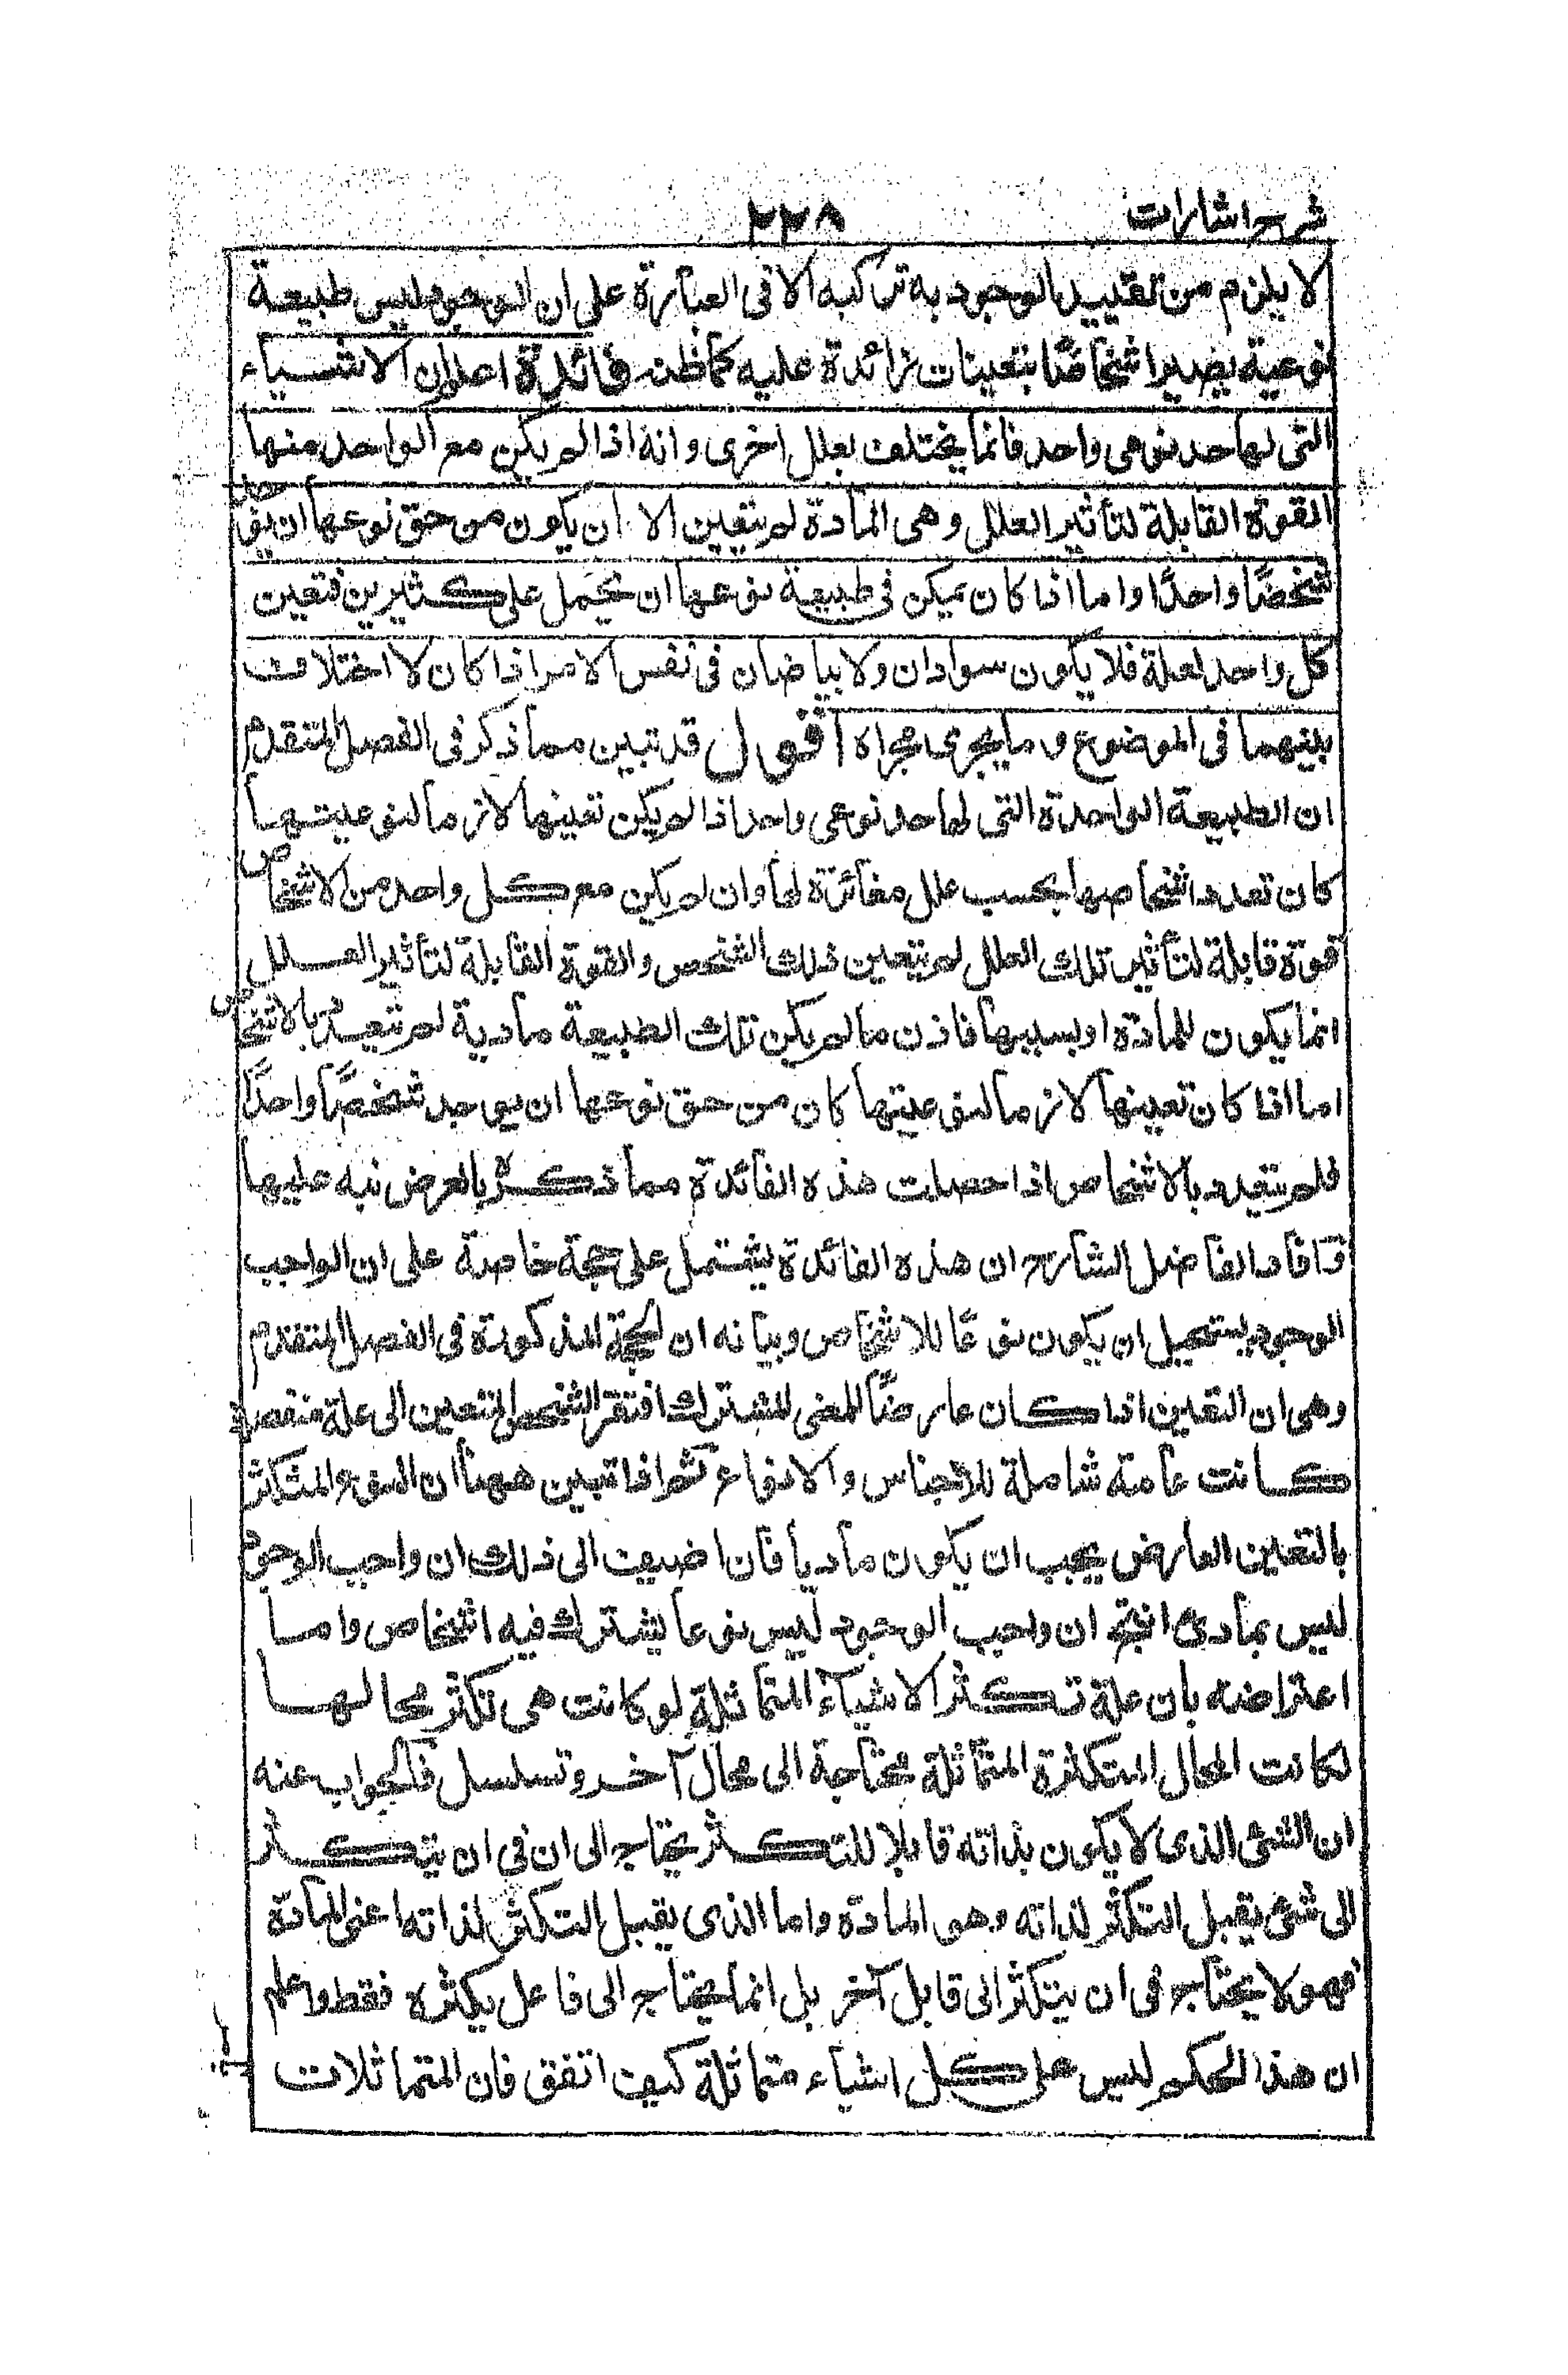 شرح اشارات ٢٢٨
لا يلزم من تقييد الوجود به تركبه الا فى العبارة على ان الوجود ليس طبيعة
نوعية يصير اشخاصًا بتعينات زائدة عليه كما ظنه فائدة اعلم ان الاشياء
التى لها حد نوعى واحد فانما يختلف بعلل اخرى وانه اذا لم يكن مع الواحد منها
القوة القابلة لتأثير العلل وهى المادة لم يتعين الا ان يكون من حق نوعها ان يوجد
شخصًا واحدًا واما اذا كان يمكن فى طبيعة نوعها ان تحمل على كثيرين فتعين
كل واحد لعلة فلا يكون سوادان ولا بياضان فى نفس الامر اذا كان لا اختلاف
بينهما فى الموضوع وما يجرى مجراه اقول قد تبين مما ذكر فى الفصل المتقدم
ان الطبيعة الواحدة التى لها حد نوعى واحد اذا لم يكن تعينها لازما لنوعيتها
كان تعدد اشخاصها بحسب علل مغائرة لها وان لم يكن مع كل واحد من الاشخاص
قوة قابلة لتأثير تلك العلل لم يتعين ذلك الشخص والقوة القابلة لتأثير العلل
انما يكون للمادة او بسببها فاذن ما لم يكن تلك الطبيعة مادية لم تتعدد بالاشخاص
اما اذا كان تعينها لازما لنوعيتها كان من حق نوعها ان يوجد شخصًا واحدًا
فلم يتعدد بالاشخاص اذا حصلت هذه الفائدة مما ذكره بالعرض نبه عليها
وافاد الفاضل الشارح ان هذه الفائدة يشتمل على حجة خاصة على ان الواجب
الوجود يستحيل ان يكون نوعًا للاشخاص وبيانه ان الحجة المذكورة فى الفصل المتقدم
وهى ان التعين اذا كان عارضًا للمعنى المشترك افتقر الشخص المتعين الى علة منفصلة
كانت عامة شاملة للاجناس والانواع ثم اذا تبين ههنا ان النوع المتكثر
بالتعين العارض يجب ان يكون ماديا فان اضيف الى ذلك ان واجب الوجود
ليس بمادى انتج ان واجب الوجود ليس نوعا يشترك فيه اشخاص واما
اعتراضه بان علة تكثر الاشياء المتماثلة لو كانت هى تكثر محالها
لكانت المحال المتكثرة المتماثلة محتاجة الى محال آخر وتسلسل فالجواب عنه
ان الشئ الذى لا يكون بذاته قابلا للتكثر يحتاج الى ان فى ان يتكثر
الى شئ يقبل التكثر لذاته وهو المادة واما الذى يقبل التكثر لذاته اعنى المادة
فهو لا يحتاج فى ان يتكثر الى قابل آخر بل انما يحتاج الى فاعل يكثره فقط واعلم
ان هذا الحكم ليس على كل اشياء متماثلة كيف اتفق فان المتماثلات